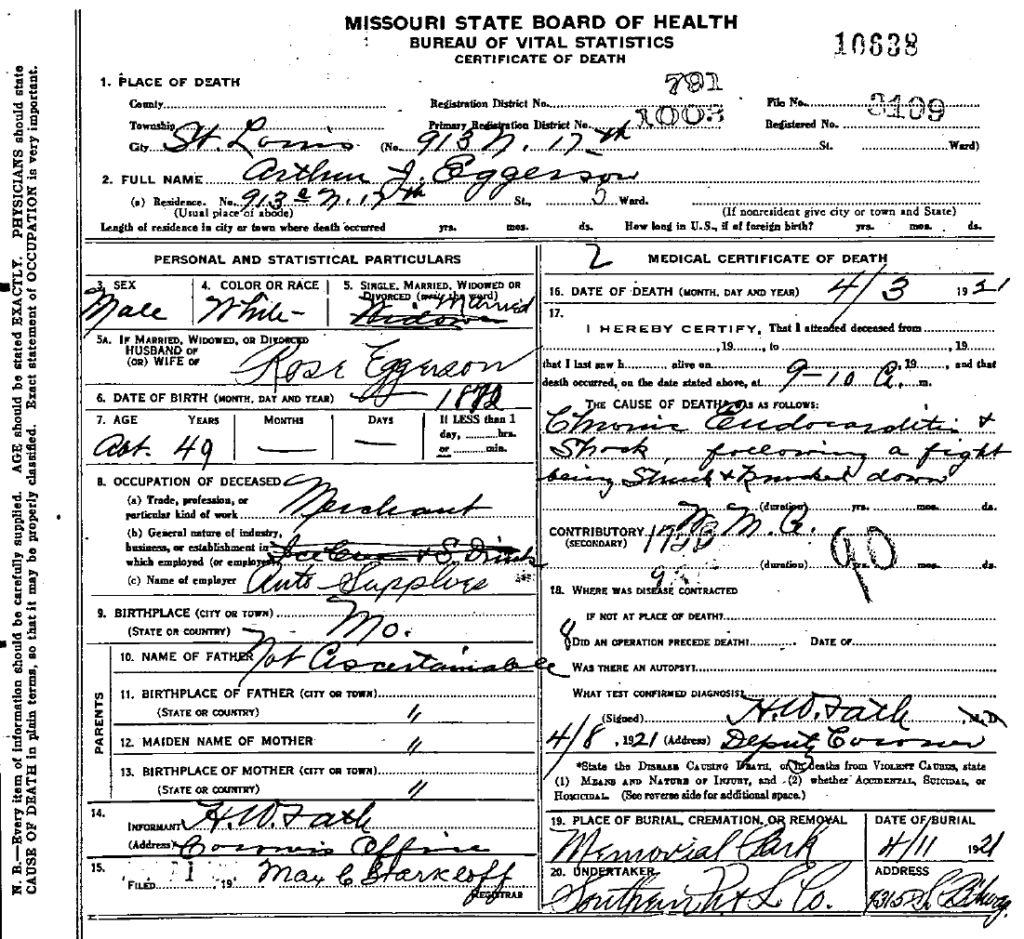 MISSOURI STATE BOARD OF HEALTH
BUREAU OF VITAL STATISTICS
CERTIFICATE OF DEATH
10638
1. PLACE OF DEATH
County
Registration District No. 781
File No.
Township
Primary Registration District No. 1003
Registered No. 3109
City St. Louis (No. 913 N. 17th St. Ward)
2. FULL NAME Arthur J. Eggerson
(a) Residence. No. 913a N. 17th St., 5 Ward.
(Usual place of abode) (If nonresident give city or town and State)
Length of residence in city or town where death occurred yrs. mos. ds. How long in U.S., if of foreign birth? yrs. mos. ds.
PERSONAL AND STATISTICAL PARTICULARS
3. SEX
Male
4. COLOR OR RACE
White
5. SINGLE, MARRIED, WIDOWED OR
DIVORCED (write the word)
Married
Widower
5A. IF MARRIED, WIDOWED, OR DIVORCED
HUSBAND OF
(OR) WIFE OF Rose Eggerson
6. DATE OF BIRTH (MONTH, DAY AND YEAR) 1872
7. AGE YEARS MONTHS DAYS If LESS than 1
day, hrs.
or min.
Abt. 49 — —
8. OCCUPATION OF DECEASED
(a) Trade, profession, or
particular kind of work Merchant
(b) General nature of industry,
business, or establishment in
which employed (or employer) Ice Cream & S. Drinks
(c) Name of employer Auto Supplies
9. BIRTHPLACE (CITY OR TOWN)
(STATE OR COUNTRY) Mo.
PARENTS
10. NAME OF FATHER Not Ascertainable
11. BIRTHPLACE OF FATHER (CITY OR TOWN)
(STATE OR COUNTRY) "
12. MAIDEN NAME OF MOTHER "
13. BIRTHPLACE OF MOTHER (CITY OR TOWN)
(STATE OR COUNTRY) "
14.
INFORMANT H.W. Fath
(Address) Coroner's Office
15.
FILED 1 19 Max C Starkloff
REGISTRAR
2 MEDICAL CERTIFICATE OF DEATH
16. DATE OF DEATH (MONTH, DAY AND YEAR) 4/3 1921
17.
I HEREBY CERTIFY, That I attended deceased from
, 19 , to , 19
that I last saw h alive on , 19 , and that
death occurred, on the date stated above, at 9-10 A. m.
THE CAUSE OF DEATH WAS AS FOLLOWS:
Chronic Endocarditis &
Shock, following a fight
being Struck & Knocked down
(duration) yrs. mos. ds.
CONTRIBUTORY
(SECONDARY)
(duration) yrs. mos. ds.
90
18. WHERE WAS DISEASE CONTRACTED
IF NOT AT PLACE OF DEATH?
DID AN OPERATION PRECEDE DEATH? DATE OF
WAS THERE AN AUTOPSY?
WHAT TEST CONFIRMED DIAGNOSIS?
(Signed) H.W. Fath M.D.
4/8, 1921 (Address) Deputy Coroner
*State the DISEASE CAUSING DEATH, or in deaths from VIOLENT CAUSES, state
(1) MEANS AND NATURE OF INJURY, and (2) whether ACCIDENTAL, SUICIDAL, or
HOMICIDAL. (See reverse side for additional space.)
19. PLACE OF BURIAL, CREMATION, OR REMOVAL
Memorial Park
DATE OF BURIAL
4/11 1921
20. UNDERTAKER
Southern
ADDRESS
N. B.—Every item of information should be carefully supplied. AGE should be stated EXACTLY. PHYSICIANS should state
CAUSE OF DEATH in plain terms, so that it may be properly classified. Exact statement of OCCUPATION is very important.